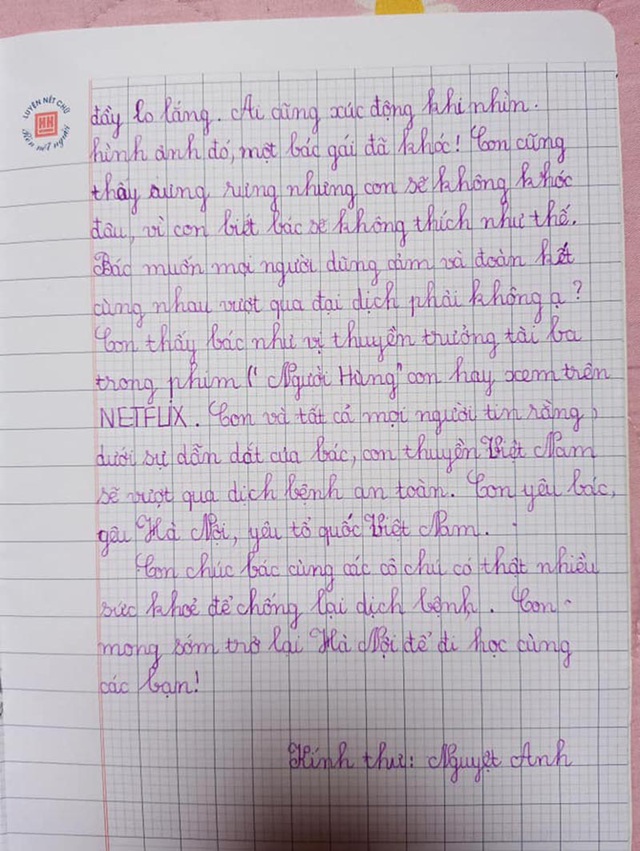 LUYỆN NÉT CHỮ
HH
RÈN NẾT NGƯỜI
đầy lo lắng. Ai cũng xúc động khi nhìn.
hình ảnh đó, một bác gái đã khóc! Con cũng
thấy rưng rưng nhưng con sẽ không khóc
đâu, vì con biết bác sẽ không thích như thế.
Bác muốn mọi người dũng cảm và đoàn kết
cùng nhau vượt qua đại dịch phải không ạ?
Con thấy bác như vị thuyền trưởng tài ba
trong phim ("Người Hùng" con hay xem trên
NETFLIX. Con và tất cả mọi người tin rằng,
dưới sự dẫn dắt của bác, con thuyền Việt Nam
sẽ vượt qua dịch bệnh an toàn. Con yêu bác,
yêu Hà Nội, yêu tổ quốc Việt Nam.
Con chúc bác cùng các cô chú có thật nhiều
sức khoẻ để chống lại dịch bệnh. Con
mong sớm trở lại Hà Nội để đi học cùng
các bạn!
Kính thư: Nguyệt Anh